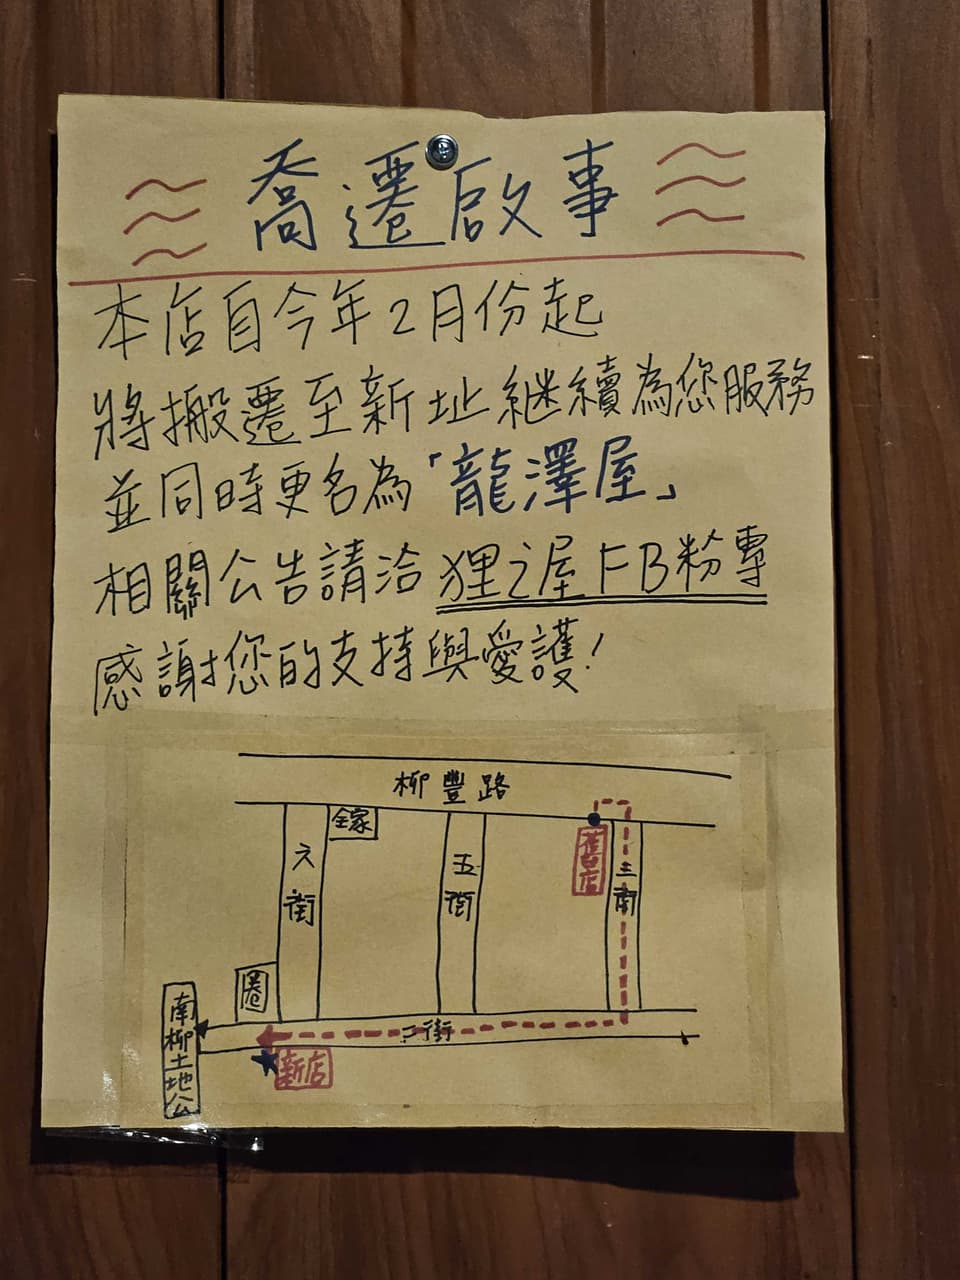 喬遷啟事
本店自今年2月份起
將搬遷至新址繼續為您服務
並同時更名為「龍澤屋」
相關公告請洽狸之屋FB粉專
感謝您的支持與愛護!
柳豐路
全家
六街
五街
舊店
三街
圈
南柳土地公
二街
新店